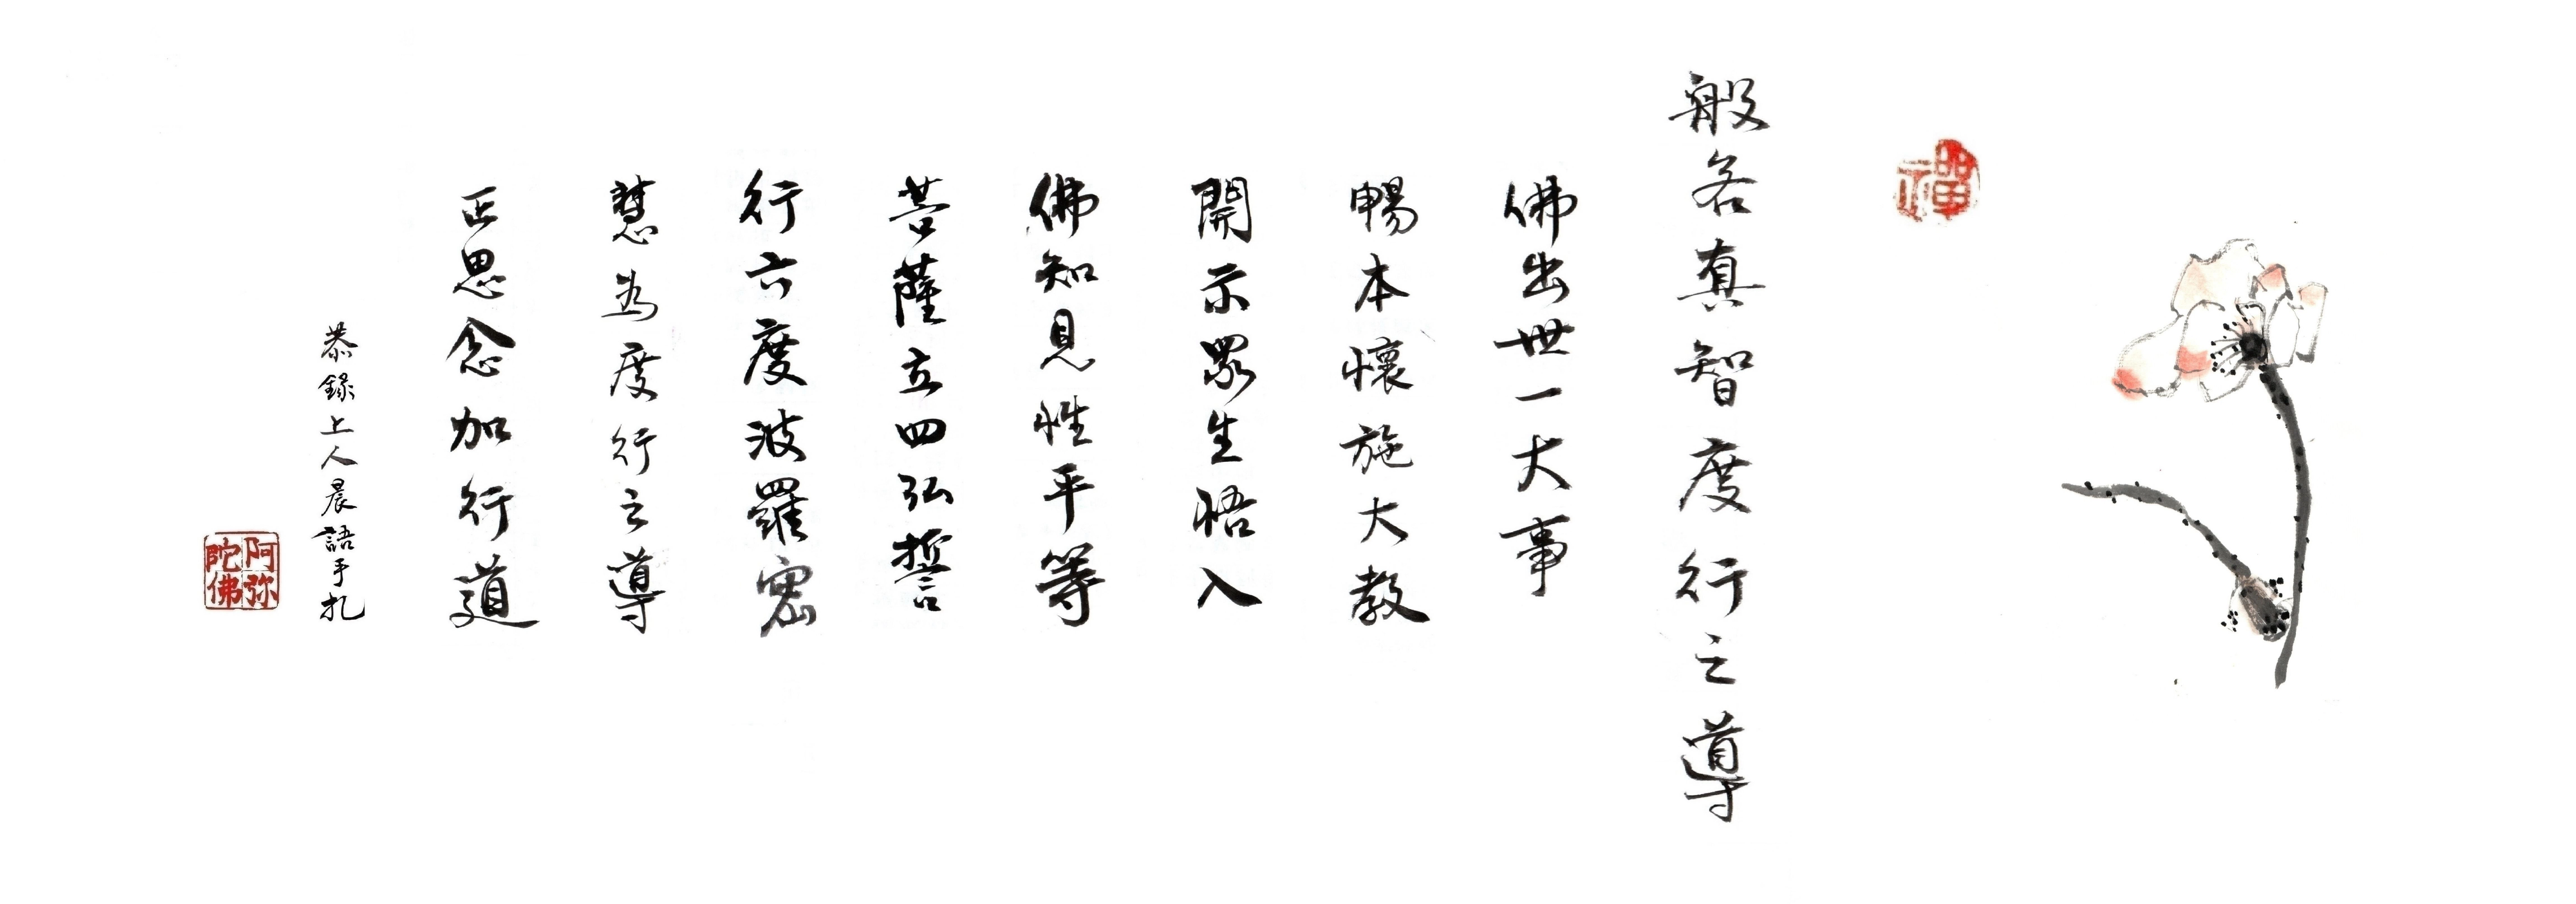 禪
般若真智度行之導
佛出世一大事
暢本懷施大教
開示眾生悟入
佛知見性平等
菩薩立四弘誓
行六度波羅密
慧為度行之導
正思念加行道
恭錄上人晨語手扎
阿弥陀佛